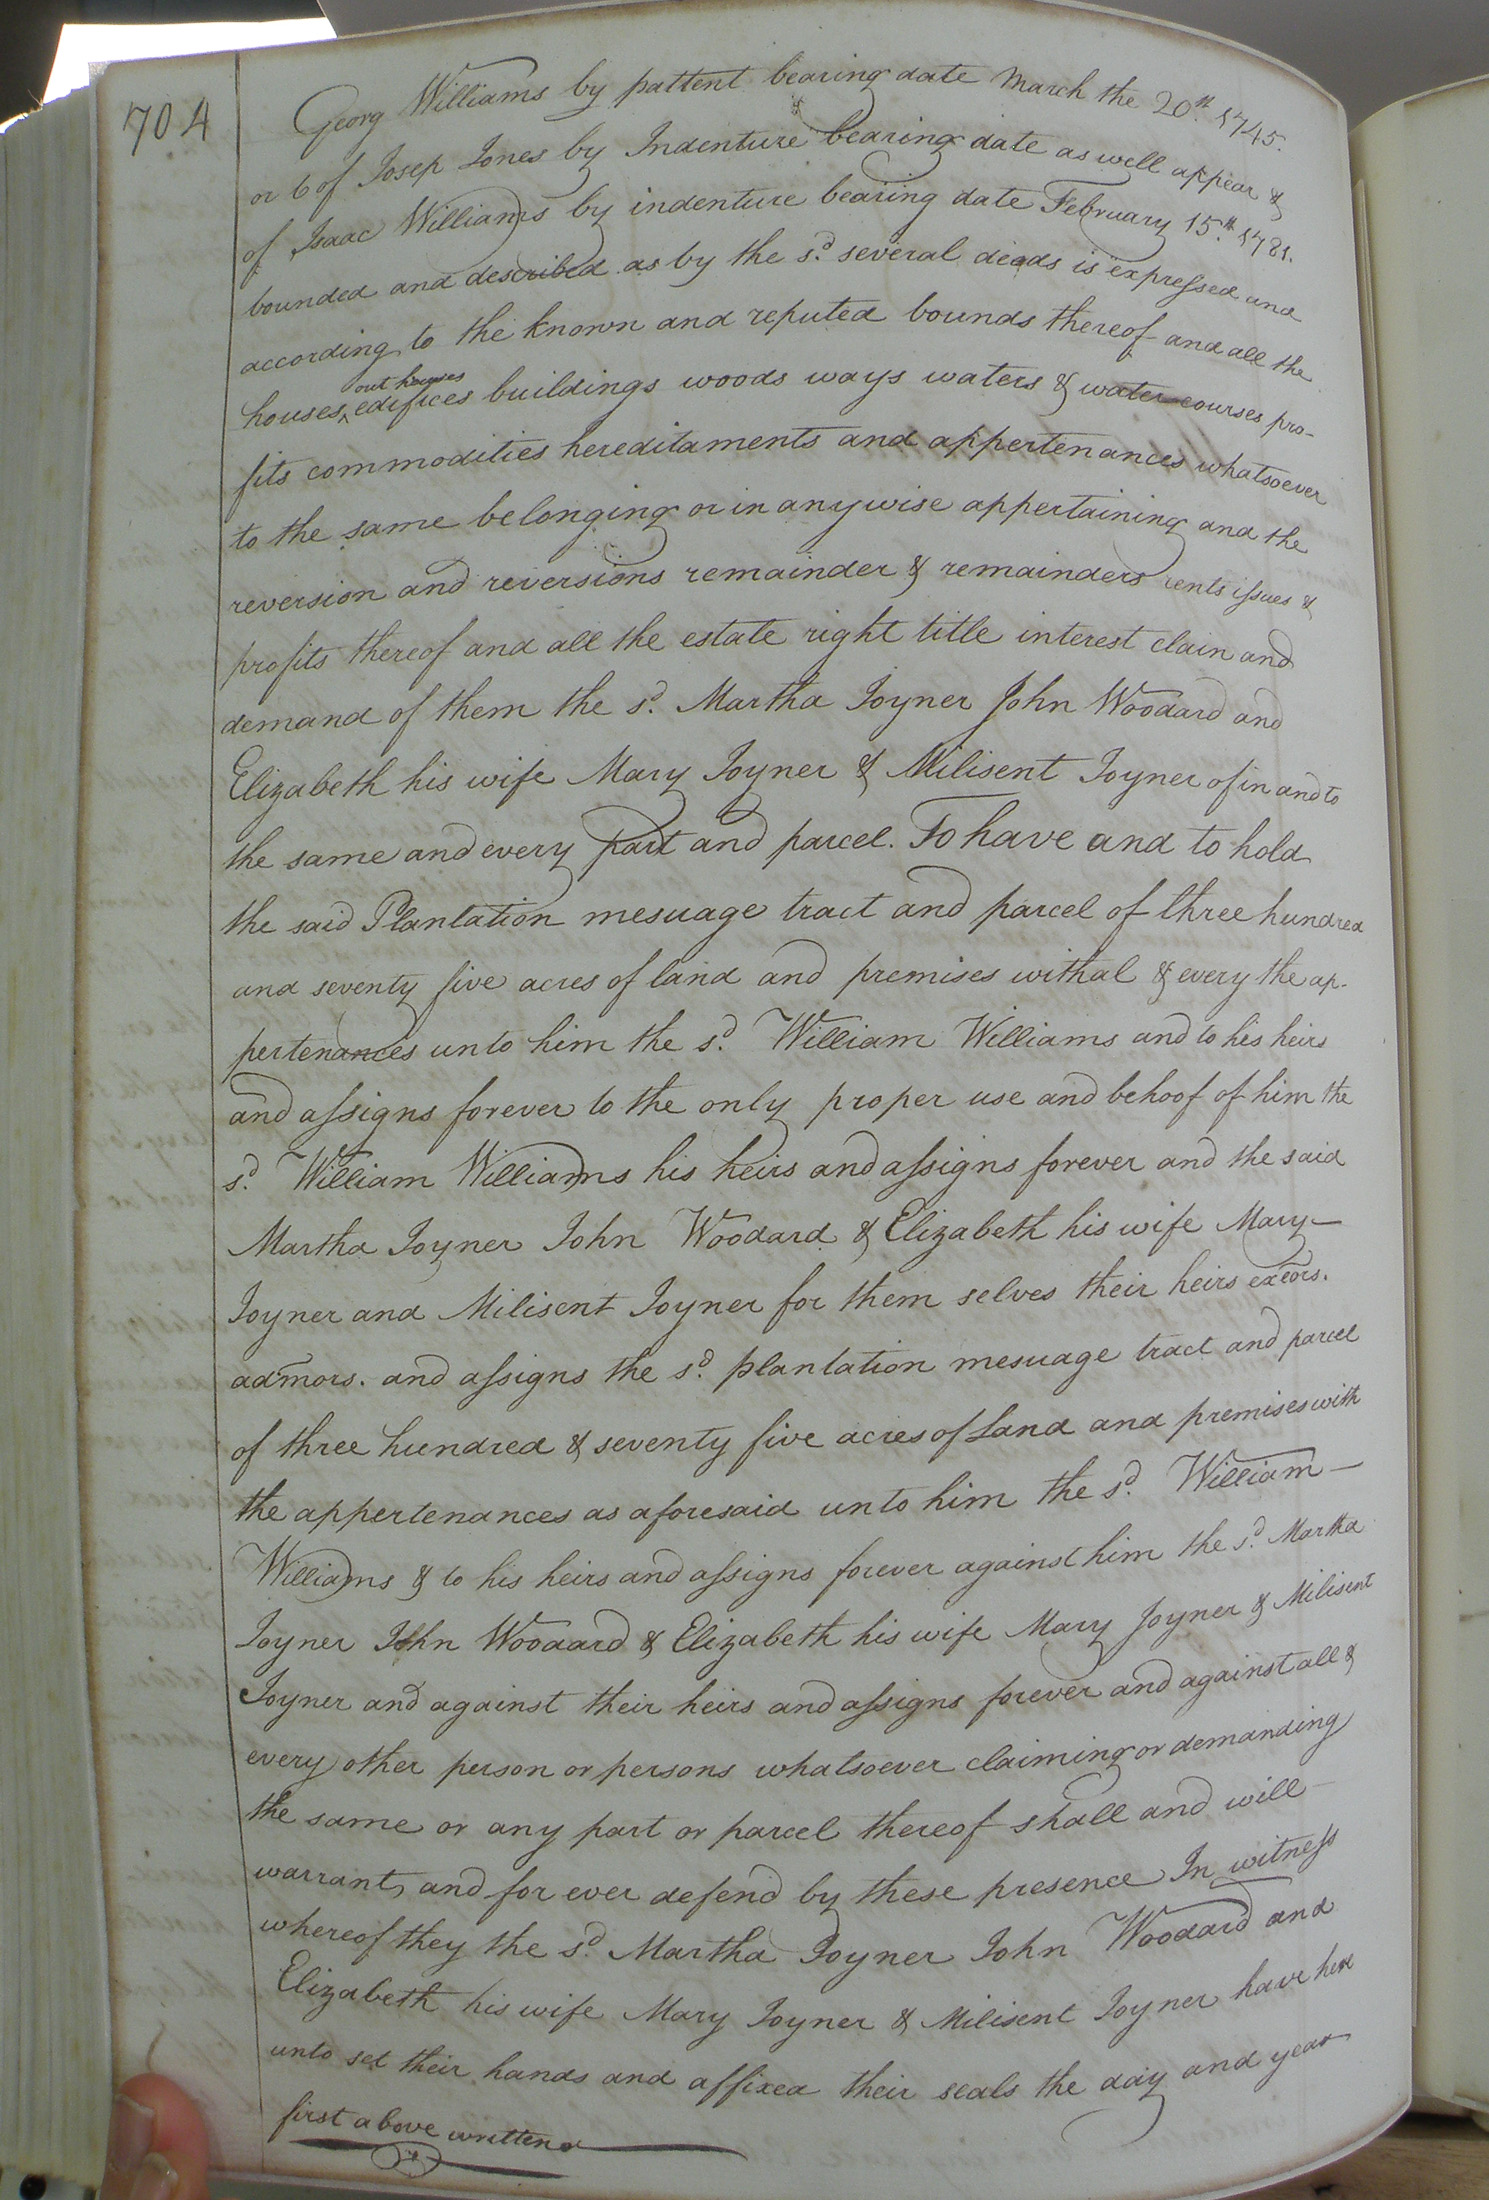 704
Georg Williams by pattent bearing date March the 20th. 1745.
or 6 of Josep Jones by Indenture bearing date as well appear &
of Isaac Williams by indenture bearing date February 15th. 1781.
bounded and described as by the sd. several deeds is expressed and
according to the known and reputed bounds thereof and all the
out houses
houses, edifices buildings woods ways waters & water courses pro-
fits commodities hereditaments and appertenances whatsoever
to the same belonging or in any wise appertaining and the
reversion and reversions remainder & remainders rents issues &
profits thereof and all the estate right title interest clain and
demand of them the sd. Martha Joyner John Woodard and
Elizabeth his wife Mary Joyner & Milisent Joyner of in and to
the same and every part and parcel. To have and to hold
the said Plantation mesuage tract and parcel of three hundred
and seventy five acres of land and premises withal & every the ap-
pertenances unto him the sd. William Williams and to his heirs
and assigns forever to the only proper use and behoof of him the
sd. William Williams his heirs and assigns forever and the said
Martha Joyner John Woodard & Elizabeth his wife Mary
Joyner and Milisent Joyner for them selves their heirs exeors.
admors. and assigns the sd. plantation mesuage tract and parcel
of three hundred & seventy five acres of Land and premises with
the appertenances as aforesaid unto him the sd. William
Williams & to his heirs and assigns forever against him the sd. Martha
Joyner John Woodard & Elizabeth his wife Mary Joyner & Milisent
Joyner and against their heirs and assigns forever and against all &
every other person or persons whatsoever claiming or demanding
the same or any part or parcel thereof shall and will
warrant, and for ever defend by these presence In witness
whereof they the sd. Martha Joyner John Woodard and
Elizabeth his wife Mary Joyner & Milisent Joyner have here
unto set their hands and affixed their seals the day and year
first above written